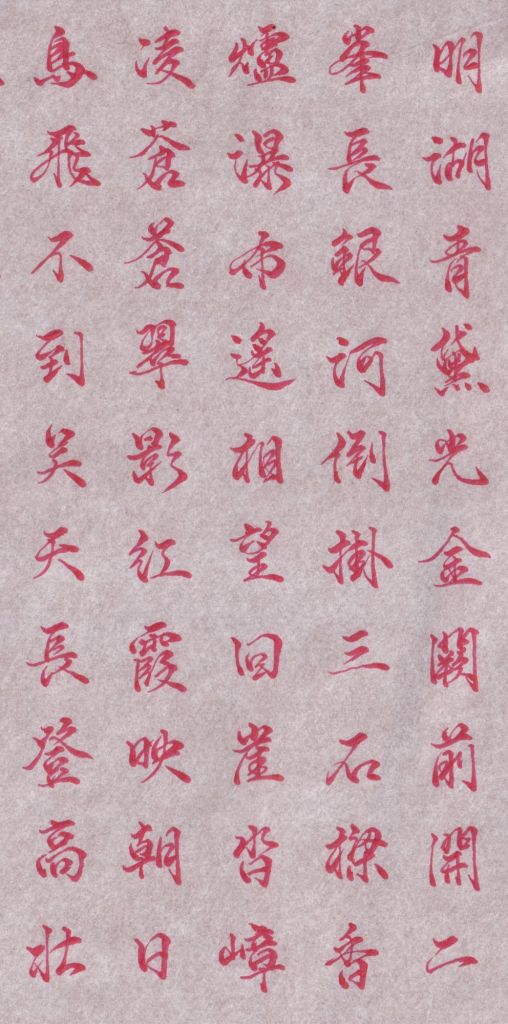 明湖青黛光金闕前開二
峯長銀河倒掛三石樑香
爐瀑布遙相望回崖沓嶂
凌蒼蒼翠影紅霞映朝日
鳥飛不到吳天長登高壯